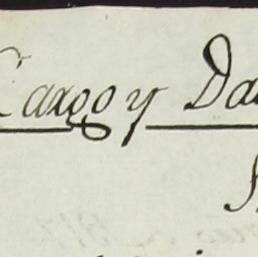 Cargo y Da